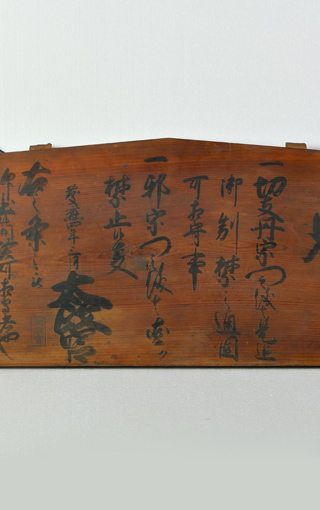 一切支丹宗門之儀ハ是迄
御制禁之通固
可相守事
一邪宗門之儀ハ固ク
禁止候事
慶應四年三月
太政官
右之
仰出 可相守者也